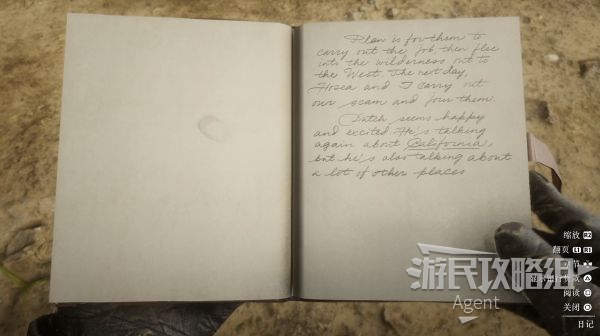 Plan is for them to
carry out the job then flee
into the wilderness out to
the West. The next day,
Hosea and I carry out
our scam and join them.
Dutch seems happy
and excited. He's talking
again about California,
but he's also talking about
a lot of other places
缩放 R2
翻页 L1 R1
阅读
关闭
日记
游民攻略组
Agent